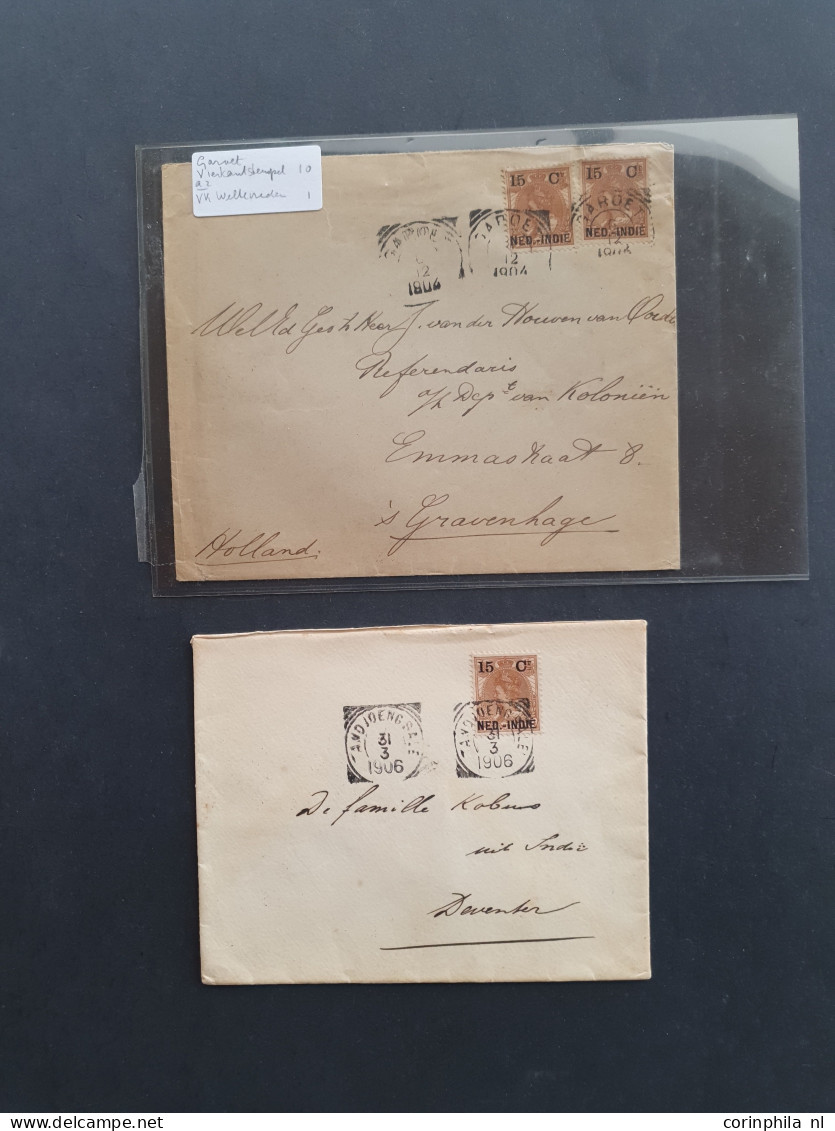 Garoet
Vierkantstempel 10
a2
VK Weltevreden 1
15 Ct 15 Ct
NED.-INDIE NED.-INDIE
GAROE
12
1904
12
1904
12
1904
WelEd Gestr Heer J. van der Houven van Oorde
Referendaris
o/h Dept van Koloniën
Emmastraat 8.
's Gravenhage
Holland.
15 Ct
NED.-INDIE
TANDJOENGBALEI
31
3
1906
TANDJOENGBALEI
31
3
1906
De famille Kobus
uit Indië
Deventer
www.corinphila.nl